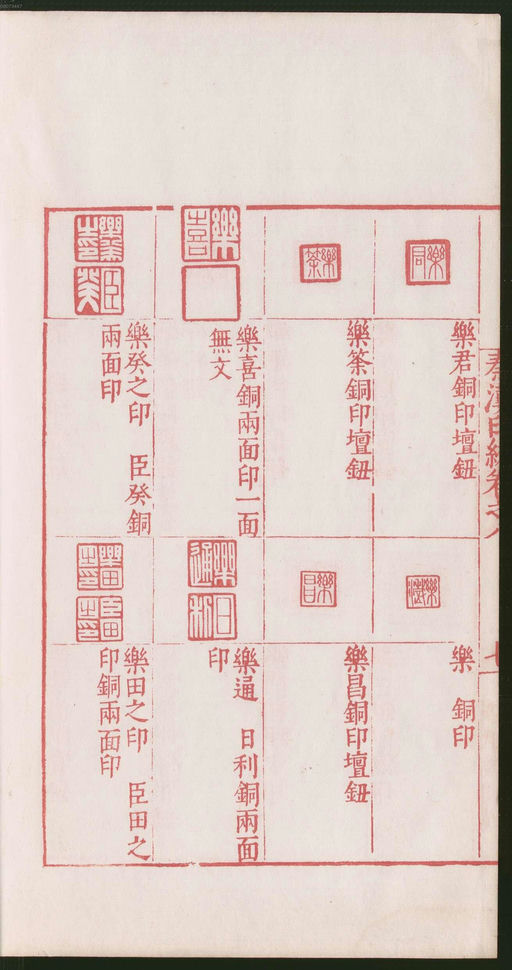 秦漢印統卷之八
七
樂君銅印壇鈕
樂筞銅印壇鈕
樂喜銅兩面印一面
無文
樂癸之印 臣癸銅
兩面印
樂 銅印
樂昌銅印壇鈕
樂通 日利銅兩面
印
樂田之印 臣田之
印銅兩面印